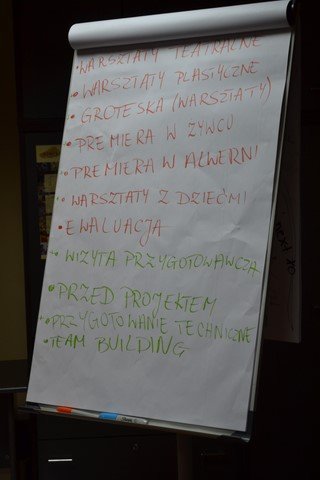 • WARSZTATY TEATRALNE
• WARSZTATY PLASTYCZNE
• GROTESKA (WARSZTATY)
• PREMIERA W ŻYWCU
• PREMIERA W ALWERNI
• WARSZTATY Z DZIEĆMI
• EWALUACJA
• WIZYTA PRZYGOTOWAWCZA
• PRZED PROJEKTEM
• PRZYGOTOWANIE TECHNICZNE
• TEAM BUILDING